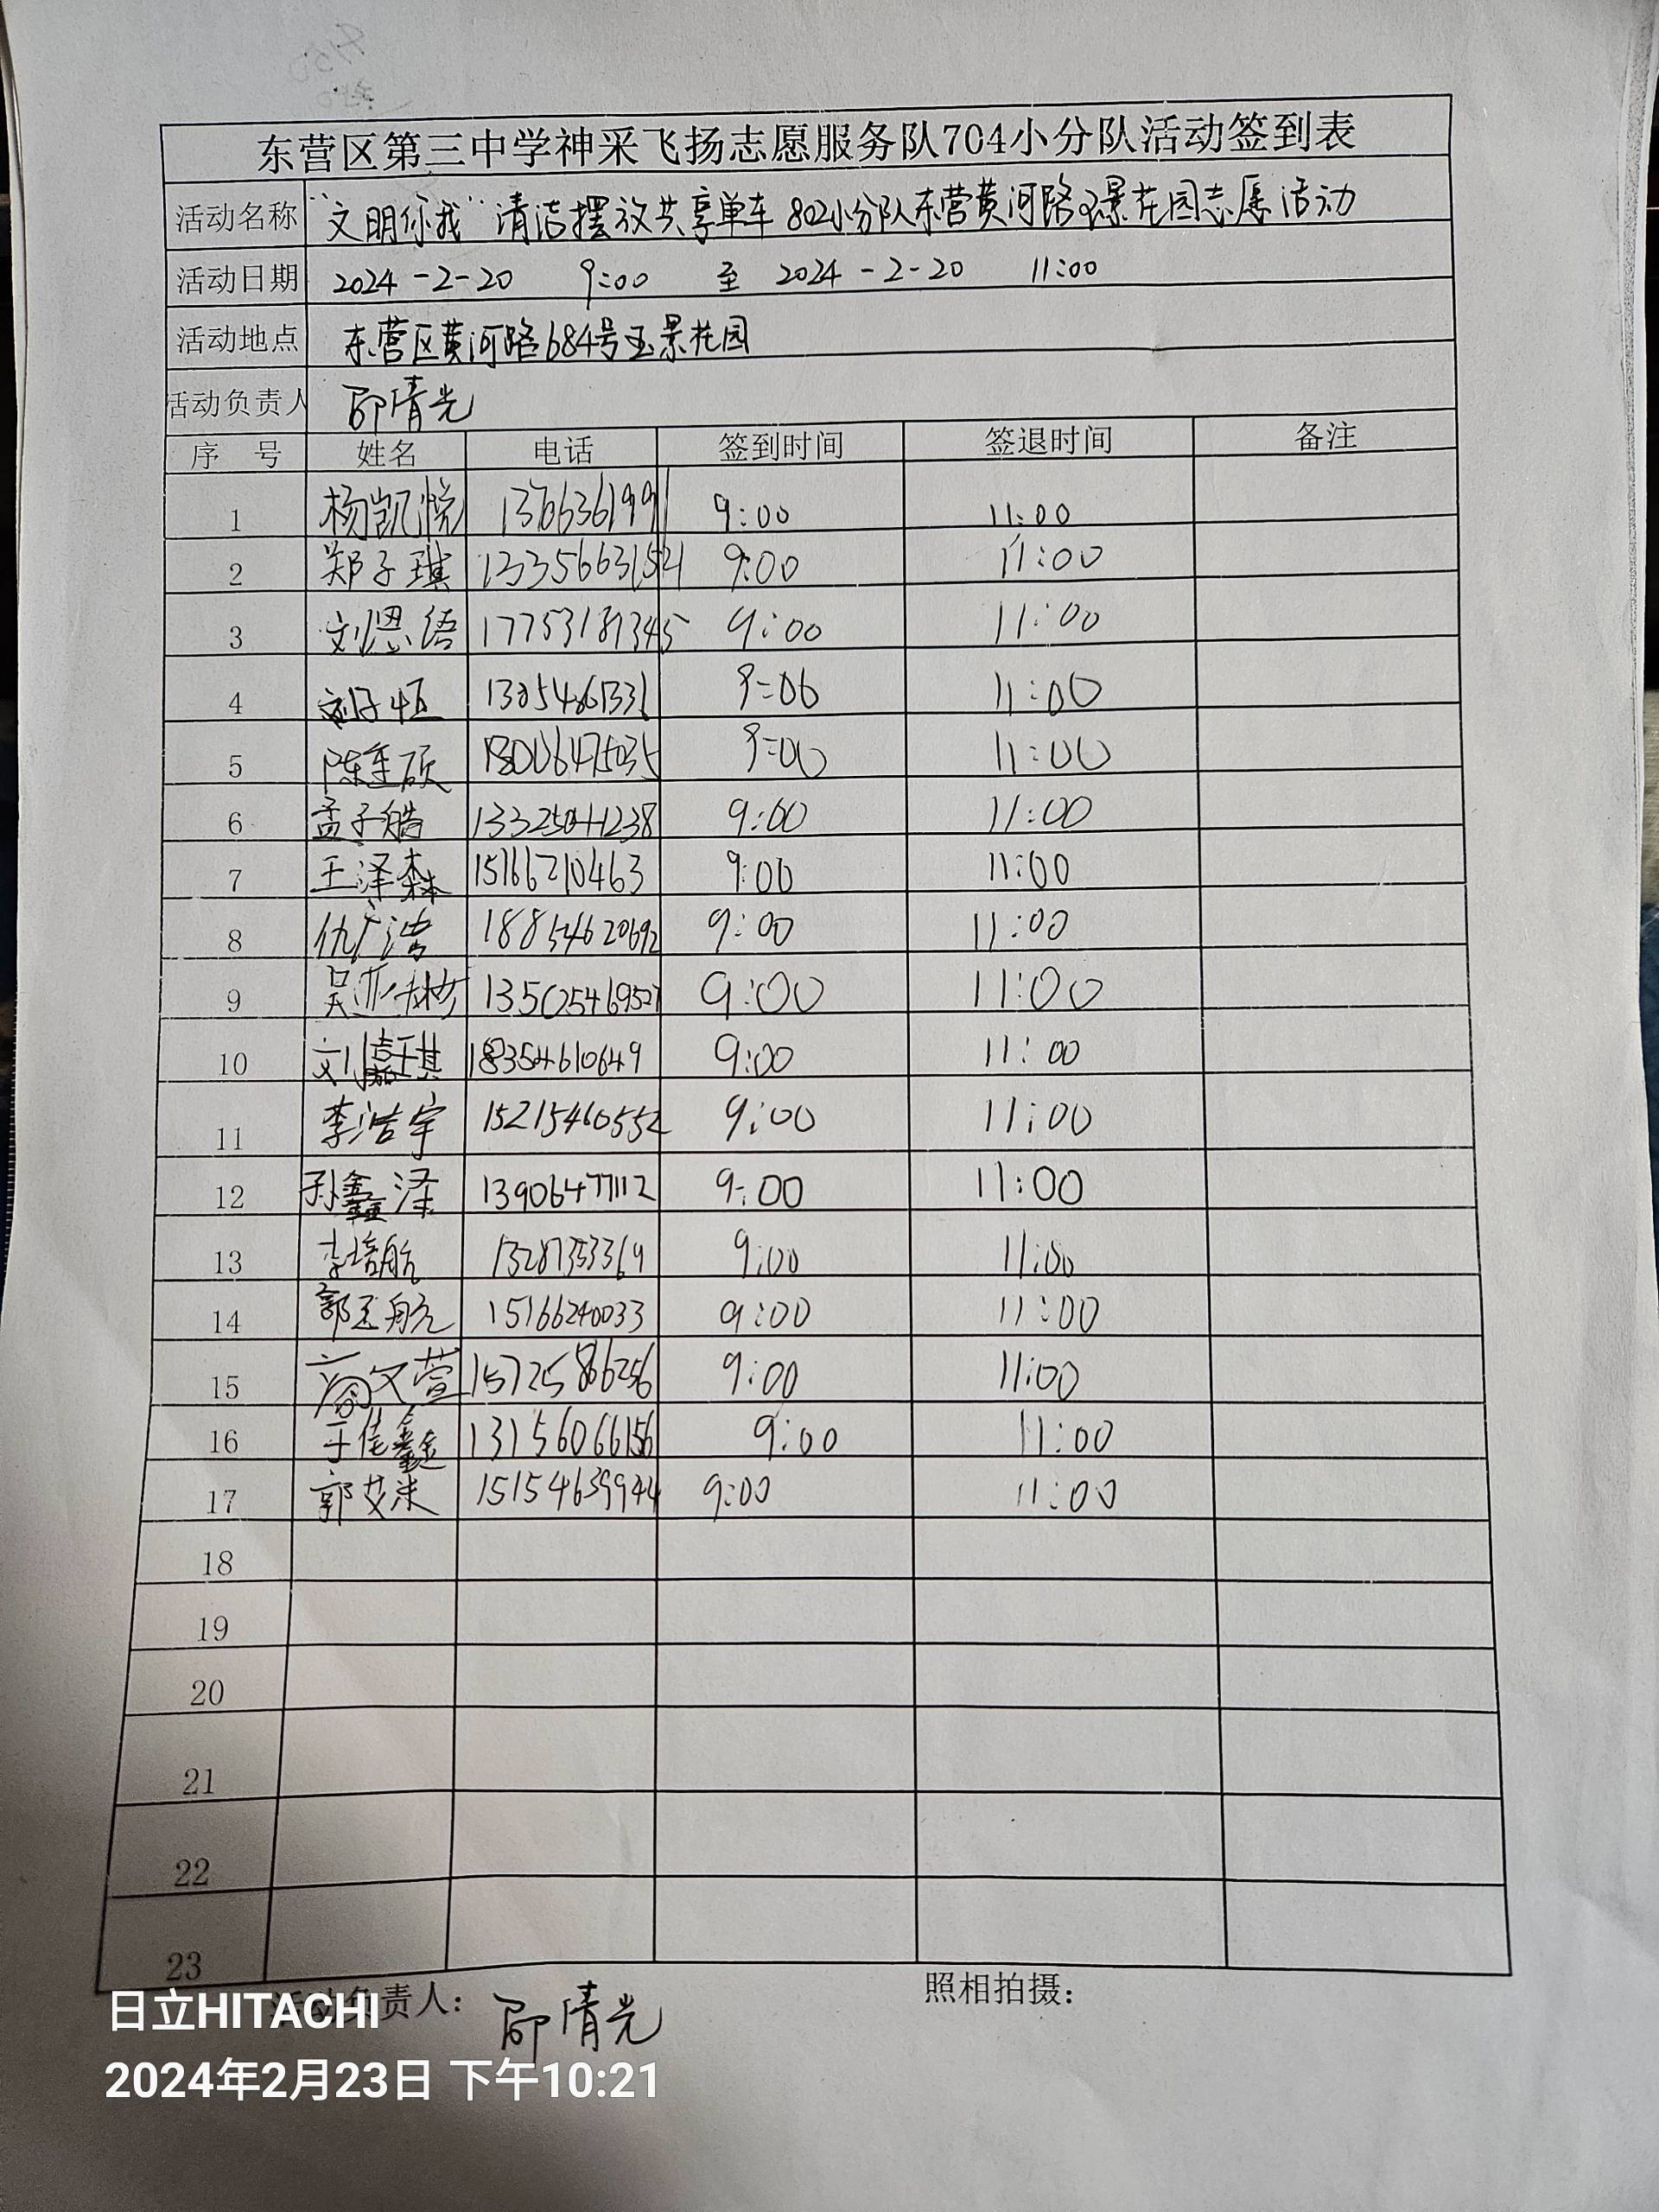 东营区第三中学神采飞扬志愿服务队704小分队活动签到表
活动名称 "文明你我"清洁摆放共享单车 802小分队东营黄河路玉景花园志愿活动
活动日期 2024-2-20 9:00 至 2024-2-20 11:00
活动地点 东营区黄河路684号玉景花园
活动负责人 邵清光
序 号 姓名 电话 签到时间 签退时间 备注
1 杨凯悦 13763619991 9:00 11:00
2 郑子琪 13356631521 9:00 11:00
3 刘恩语 17753189345 9:00 11:00
4 刘子恒 9:00 11:00
5 陈奎硕 18006475035 9:00 11:00
6 孟子皓 9:00 11:00
7 王泽森 15166210463 9:00 11:00
8 仇广浩 18854620692 9:00 11:00
9 9:00 11:00
10 刘嘉琪 18354610649 9:00 11:00
11 李浩宇 15215460552 9:00 11:00
12 孙鑫泽 13906477112 9:00 11:00
13 李培航 9:00 11:00
14 郭玉航 15166240033 9:00 11:00
15 文萱 15725866256 9:00 11:00
16 于佳鑫 13156066156 9:00 11:00
17 郭艾米 15154639944 9:00 11:00
18
19
20
21
22
23
活动负责人: 邵清光 照相拍摄:
日立HITACHI
2024年2月23日 下午10:21